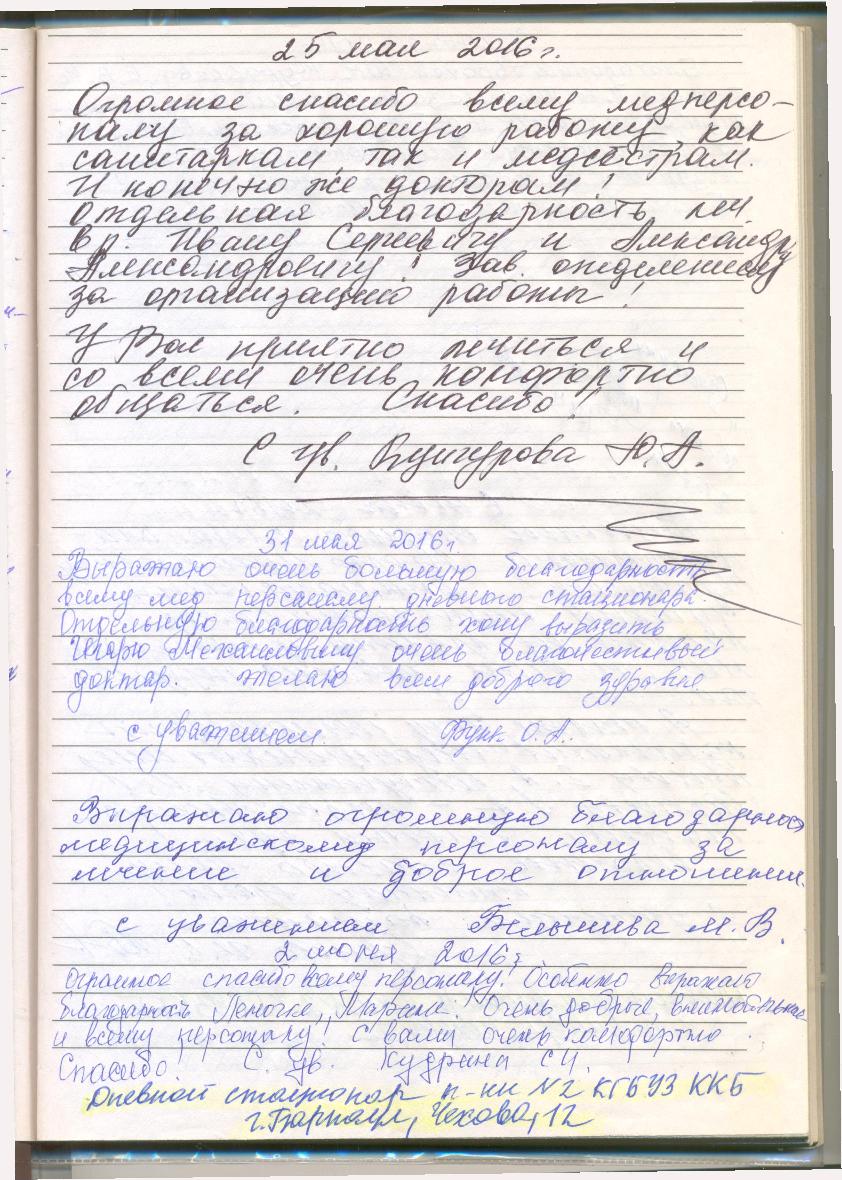 25 мая 2016 г.
Огромное спасибо всему медперсо-
налу за хорошую работу, как
санитаркам, так и медсёстрам.
И конечно же докторам!
Отдельная благодарность леч.
вр. Ивану Сергеевичу и Александру
Александровичу! Зав. отделением
за организацию работы!
У Вас приятно лечиться и
со всеми очень комфортно
общаться. Спасибо!
С ув. Ю.А.
31 мая 2016 г.
Выражаю очень большую благодарность
всему мед персоналу дневного стационара.
Отдельную благодарность хочу выразить
Игорю очень
доктар. желаю всем доброго здравия
с уважением. Функ О.А.
Выражаю огромную благодарность
медицинскому персоналу за
лечение и доброе отношение.
с уважением М.В.
2 июня 2016 г.
Огромное спасибо всему персоналу! Особенно выражаю
благодарность Леночке, Марине. Очень добрые, внимательные
и всему персоналу! С вами очень комфортно.
Спасибо! С. ув. Кудрина С.И.
Дневной стационар п-ки №2 КГБУЗ ККБ
г. Барнаул, Чехова, 12